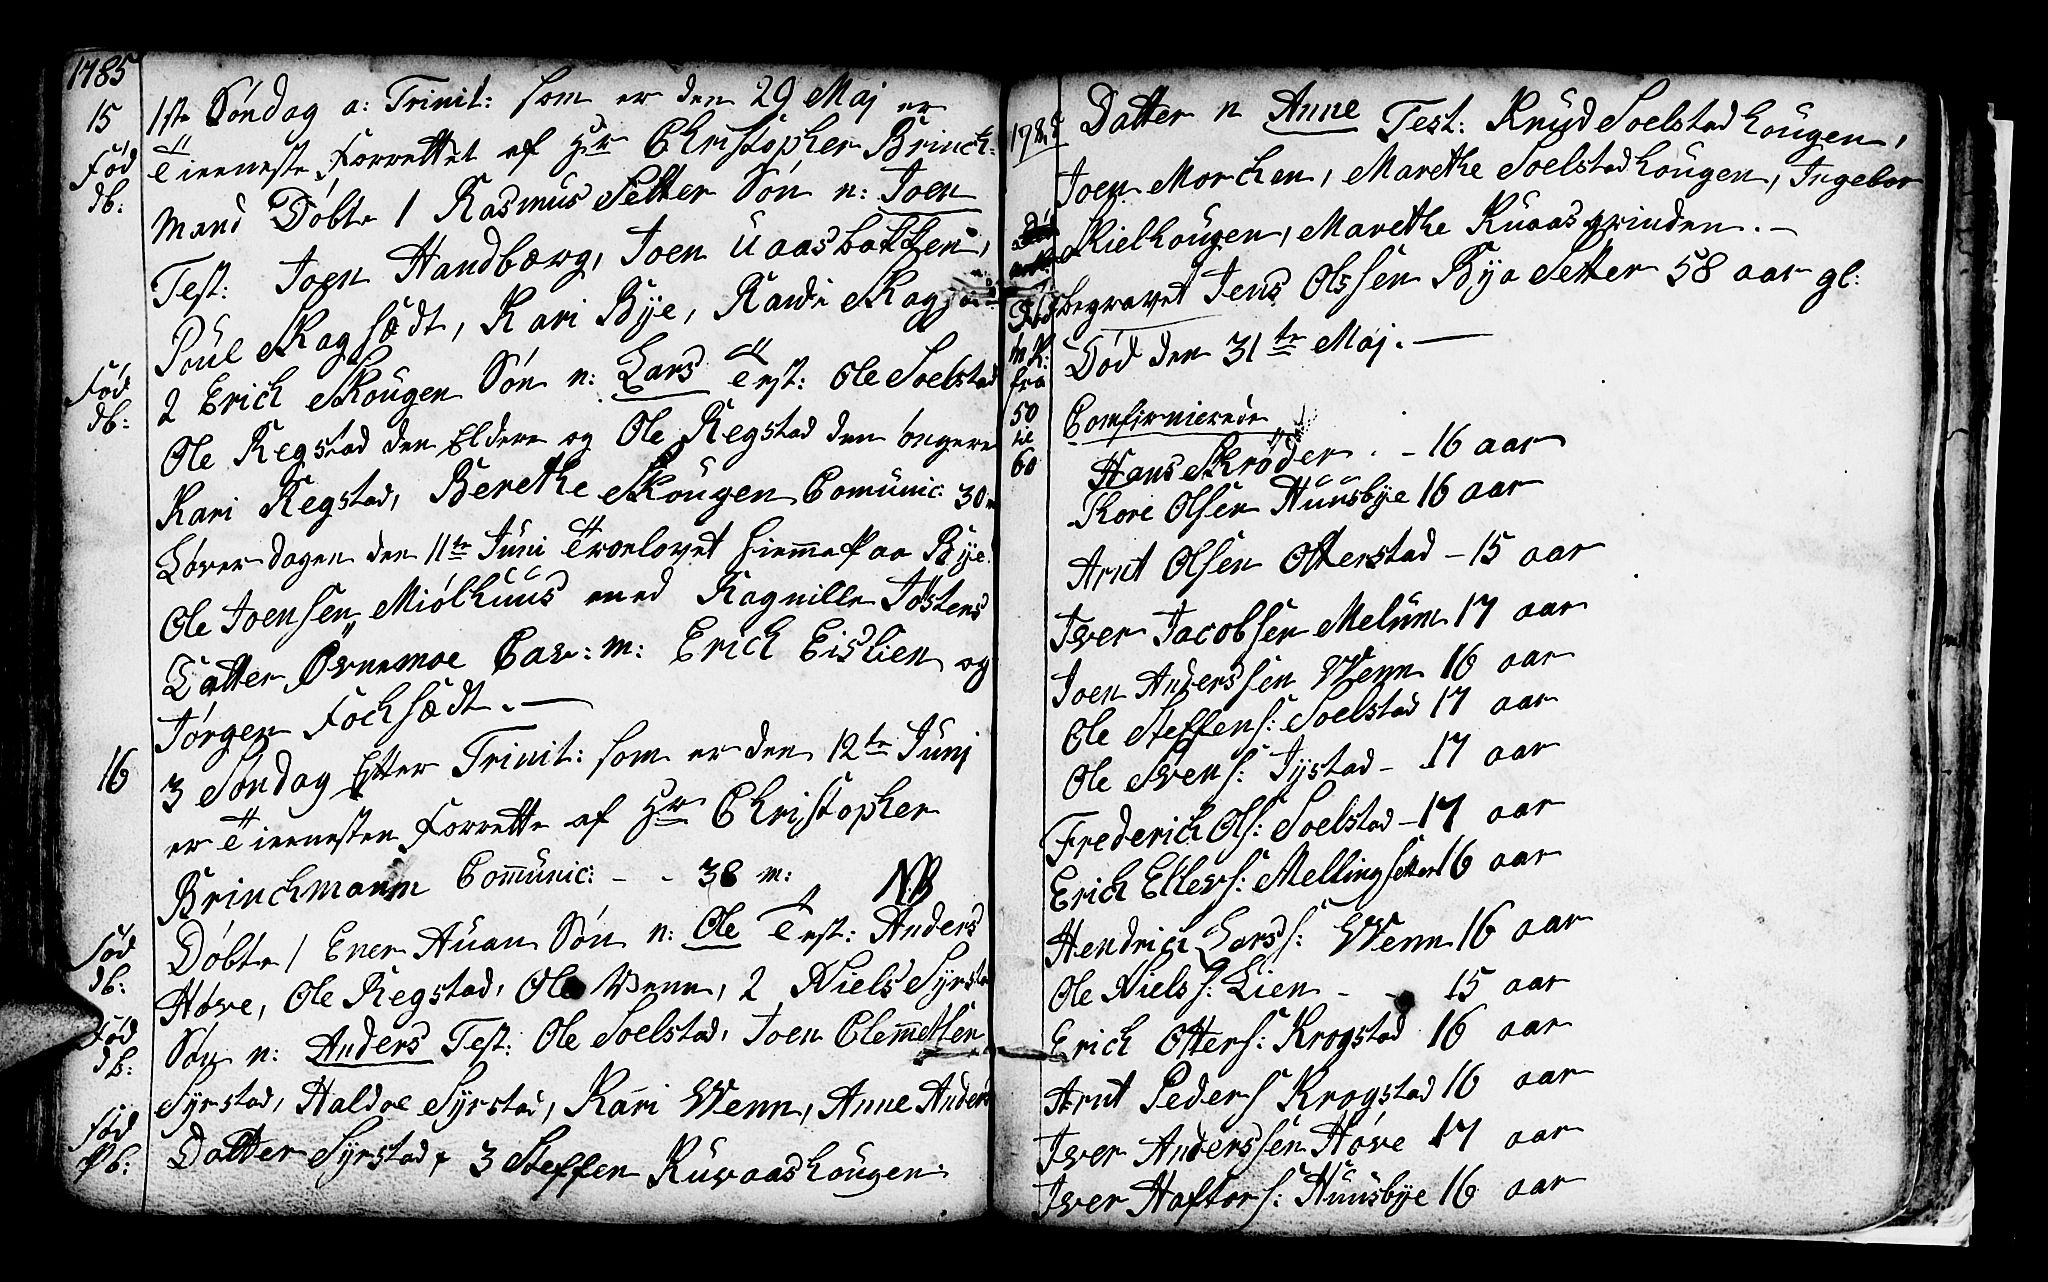 1785
15
1ste Søndag a: Trinit: som er den 29 Maj er
Fød
db:
Tienneste Forrettet af Hr Christopher Brinch-
mand Døbte 1 Rasmus Setter Søn n: Joen
Test: Joen Handbærg, Joen Uaasbakken,
Poul Skagsædt, Kari Bye, Randi
Fød
db:
2 Erich Skougen Søn n: Lars Test: Ole Soelstad
Ole Regstad den Eldere og Ole Regstad den yngere
Kari Regstad, Berethe Skougen Comunic: 30 m
Løverdagen den 11te Juni Troelovet hiemme paa Bye
Ole Joensen Miølhuus med Ragnille Jostens
Datter Øvnemoe Cav: m: Erich Eislien og
Jørgen Fochsædt. —
16
3 Søndag Efter Trinit: som er den 12te Junj
er Tiennesten Forrette af Hr Christopher
Brinchmann Comunic: - - 38 m: NB
Fød
db:
Døbte 1 Ener Auan Søn n: Ole Test: Anders
Høve, Ole Regstad, Ole Venn, 2 Niels Syrstad
Fød
db:
Søn n: Anders Test: Ole Soelstad, Joen Clemetsen
Syrstad, Haldoe Syrstad, Kari Wenn, Anne Anders
Fød
Pb:
Datter Syrstad, 3 Steffen Ruvaashougen
1785
Datter n Anne Test: Knud Soelstadhougen,
Joen Morchen, Marethe Soelstadhougen, Ingebor
Skielhougen, Marethe Ruaasgrinden. —
Død
m K:
fra
50
til
60
begravet Jens Olssen Bya Setter 58 aar gl:
Død den 31te Maj. —
Comfirmierede
Hans Skrøder . - 16 aar
Kore Olsen Huusbye 16 aar
Arnt Olsen Otterstad - 15 aar
Iver Jacobsen Melum 17 aar
Joen Anderssen Wenn 16 aar
Ole Steffens: Soelstad 17 aar
Ole Svens: Jystad - 17 aar
Frederich Ols: Soelstad - 17 aar
Erich Ellevs: Mellingsetter 16 aar
Hendrich Larss: Wenn 16 aar
Ole Niels: Lien - - 15 aar
Erich Otters: Krogstad 16 aar
Arnt Peders Krogstad 16 aar
Iver Anderssen Høve 17 aar
Iver Haftors: Huusbye 16 aar